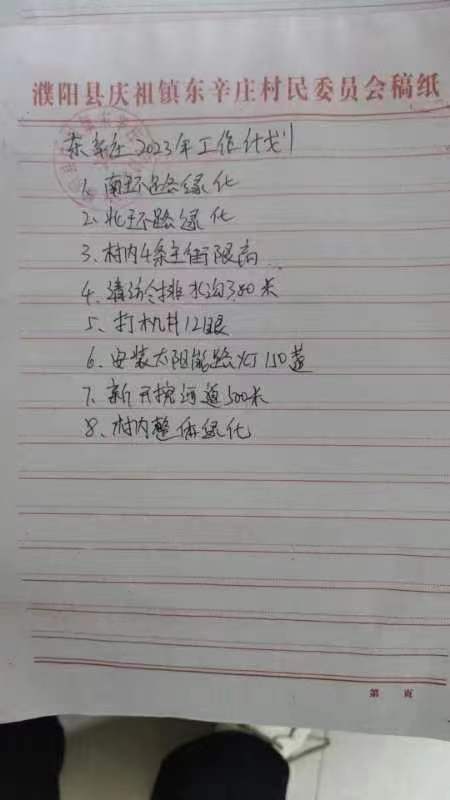 濮阳县庆祖镇东辛庄村民委员会稿纸
东辛庄2023年工作计划
1. 南环路绿化
2. 北环路绿化
3. 村内4条主街限高
4. 清污排水沟380米
5. 打机井12眼
6. 安装太阳能路灯150盏
7. 新开挖河道500米
8. 村内整体绿化
第 页